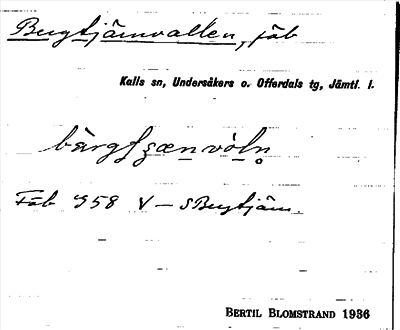 Bergtjärnvallen, fäb
Kalls sn, Undersåkers o. Offerdals tg, Jämtl. l.
Fäb 958 V – S Bergtjärn.
BERTIL BLOMSTRAND 1936